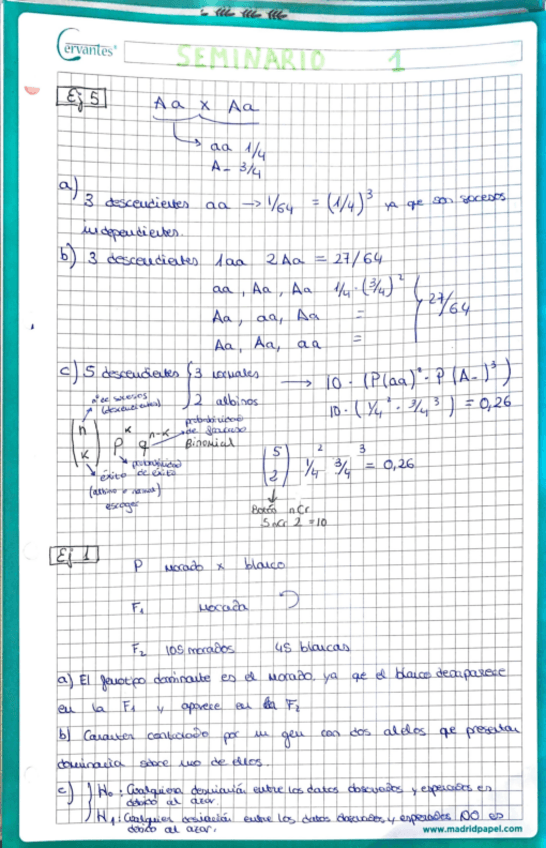 Cervantes
SEMINARIO 1
Ej 5
Aa x Aa
aa 1/4
A- 3/4
a) 3 descendientes aa → 1/64 = (1/4)³ ya qe son sucesos
independientes.
b) 3 descendientes 1aa 2Aa = 27/64
aa, Aa, Aa 1/4·(3/4)²
Aa, aa, Aa =
Aa, Aa, aa =
27/64
c) 5 descendientes { 3 normales → 10 · (P(aa)²· P(A-)³)
2 albinos 10 · (1/4² · 3/4³) = 0,26
nº de sucesos
(descendientes)
(n k) p^k q^n-k
probabilidad
de fracaso
Binomial
probabilidad
de éxito
éxito
(albino o normal)
escoger
(5 2) 1/4² 3/4³ = 0,26
Botón nCr
5 nCr 2 = 10
Ej 1
P morado x blanco
F₁ morada
F₂ 105 morados 45 blancas
a) El fenotipo dominante es el morado, ya qe el blanco desaparece
en la F₁ y aparece en la F₂
b) Caracter controlado por un gen con dos alelos qe presentan
dominancia sobre uno de ellos.
c) H₀: Cualquier desviación entre los datos observados y esperados es
debido al azar.
H₁: Cualquier desviación entre los datos observados y esperados NO es
debido al azar.
www.madridpapel.com